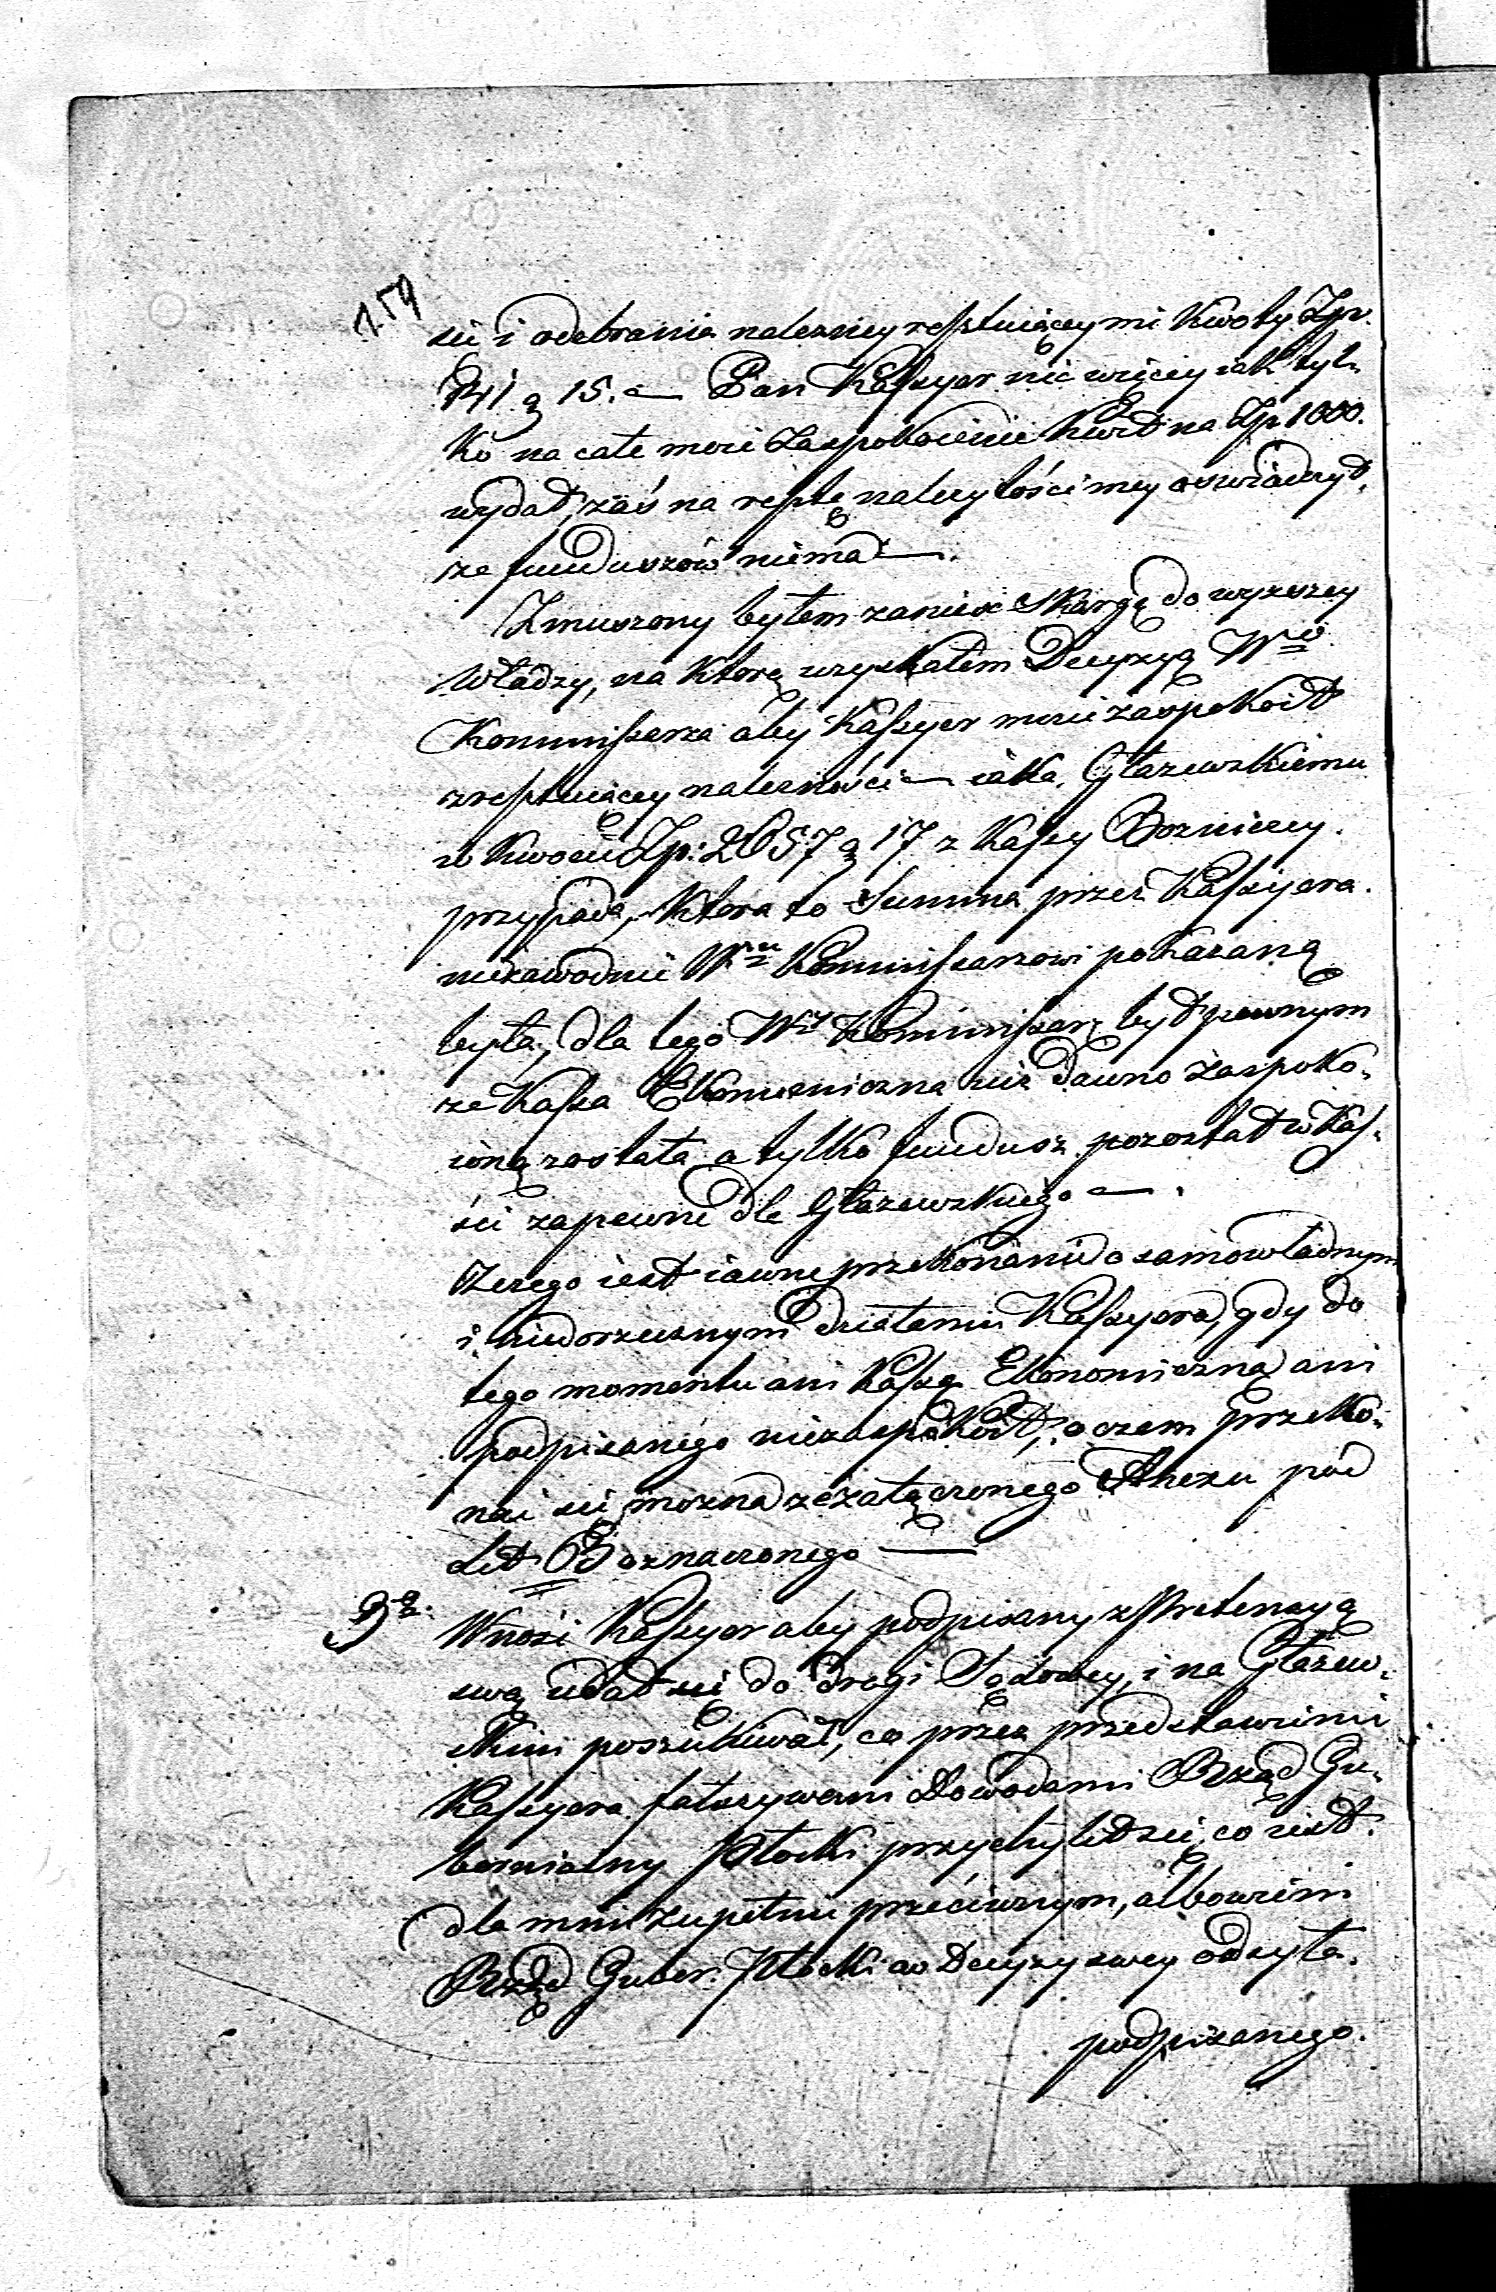 159
się i odebrania należney resztuiącey mi kwoty Złp.
741 g 15. — Pan Kassyer nic więcey iak tyl-
ko na całe moie zaspokoienie kwit na Zp 1000.
wydał, zaś na resztę należytości mey oswiadczył,
że funduszów niema —.
Zmuszony byłem zanieść skargę do wyższey
Władzy, na którą uzyskałem Decyzyą Wgo
Kommissarza aby Kassyer mnie zaspokoił
z resztuiącey należności — iaka Głazewskiemu
w kwocie Zp: 2057 g 17 z Kassy Bożniczey.
przypada, która to Summa przez Kassyera.
niezawodnie Wmu Kommissarzowi pokazaną
była, dla tego Wny Kommissarz był pewnym
że Kassa Ekonomiczna nie dawno zaspoko-
ioną została a tylko fundusz pozostał w Kas-
sie zapewne dla Głazewskiego —.
Czego iest iawne przekonanie o samowładnym
i niedorzecznym działaniu Kassyera, gdy do
tego momentu ani Kassę Ekonomiczną ani
podpisanego niezaspokoił, o czem przeko-
nać się można z załączonego Anexu pod
Lit B oznaczonego —
3e. Wnosi Kassyer aby podpisany z Pretensyą
swą udał się do drogi Sądowey, i na Głazew-
skim poszukiwał, co przez przedstawienie
Kassyera fałszywemi Dowodami Rząd Gu-
bernialny Płocki przychylił się, co iest.
dla mnie zupełnie przeciwnym, albowiem
Rząd Guber. Płocki w Decyzyi swey odsyła.
podpisanego.